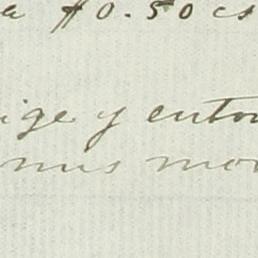 a $0.50 cs
ige y enton
nus mo